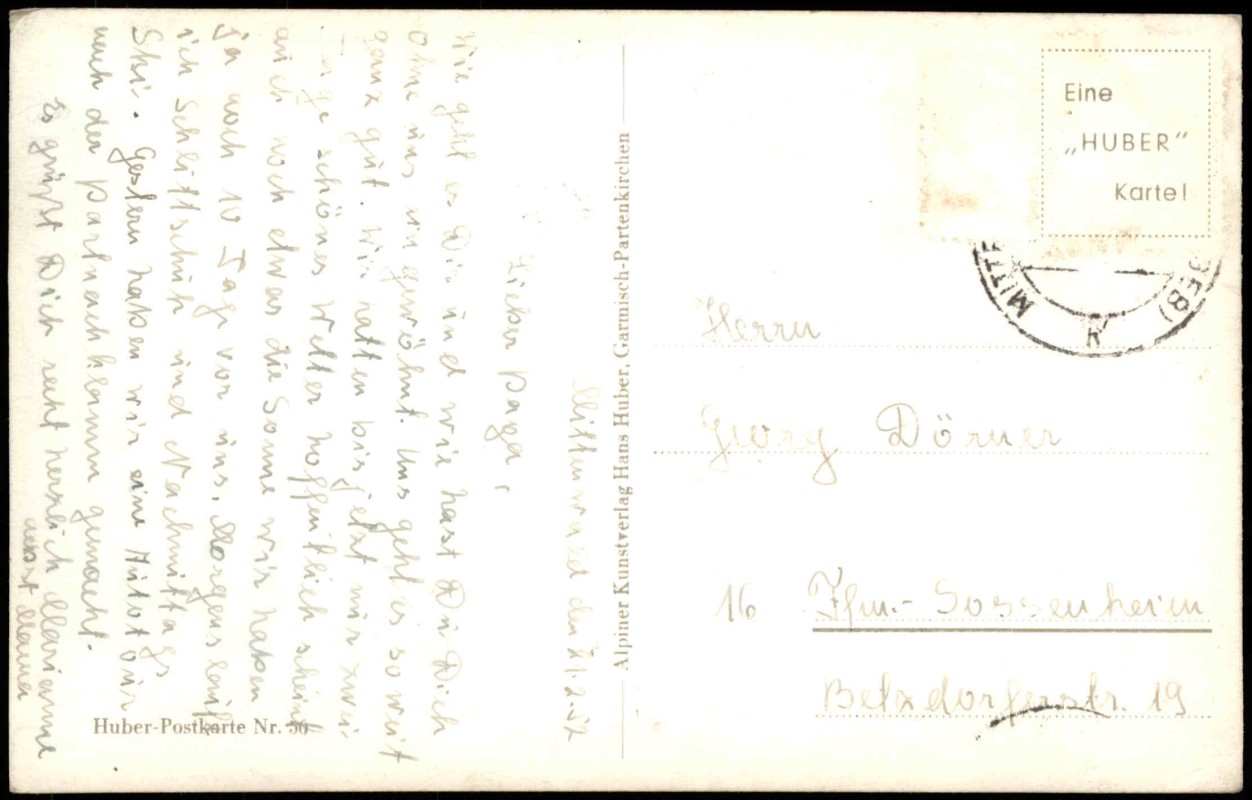 Mittenwald den 21.2.52
Lieber Papa,
Wie geht es Dir und wie hast Du Dich
ohne uns eingewöhnt. Uns geht es soweit
ganz gut. Wir hatten bis jetzt nur zwei
Tage schönes Wetter hoffentlich scheint
auch noch etwas die Sonne wir haben
ja noch 10 Tage vor uns. Morgens lauf
ich Schlittschuh und Nachmittags
Ski. Gestern haben wir eine Autotour
nach der Partnachklamm gemacht.
Es grüßt Dich recht herzlich Marianne
nebst Mama
Huber-Postkarte Nr.
Alpiner Kunstverlag Hans Huber, Garmisch-Partenkirchen
Eine
„HUBER"
Karte!
MITT
Herrn
Georg Dörner
16 Ffm.-Sossenheim
Betzdorferstr. 19